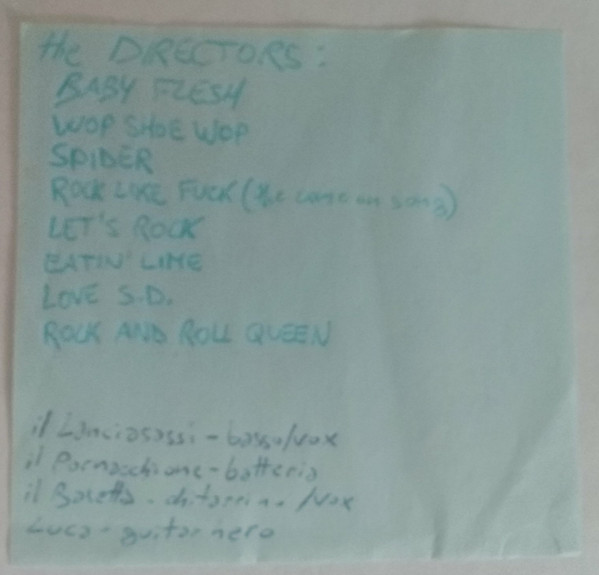 the DIRECTORS:
BABY FLESH
WOP SHOE WOP
SPIDER
ROCK LIKE FUCK (the come on song)
LET'S ROCK
EATIN' LIME
LOVE S.D.
ROCK AND ROLL QUEEN
il Lanciasassi - basso/vox
il Pornacchione - batteria
il - chitarrino /vox
Luca - guitar hero